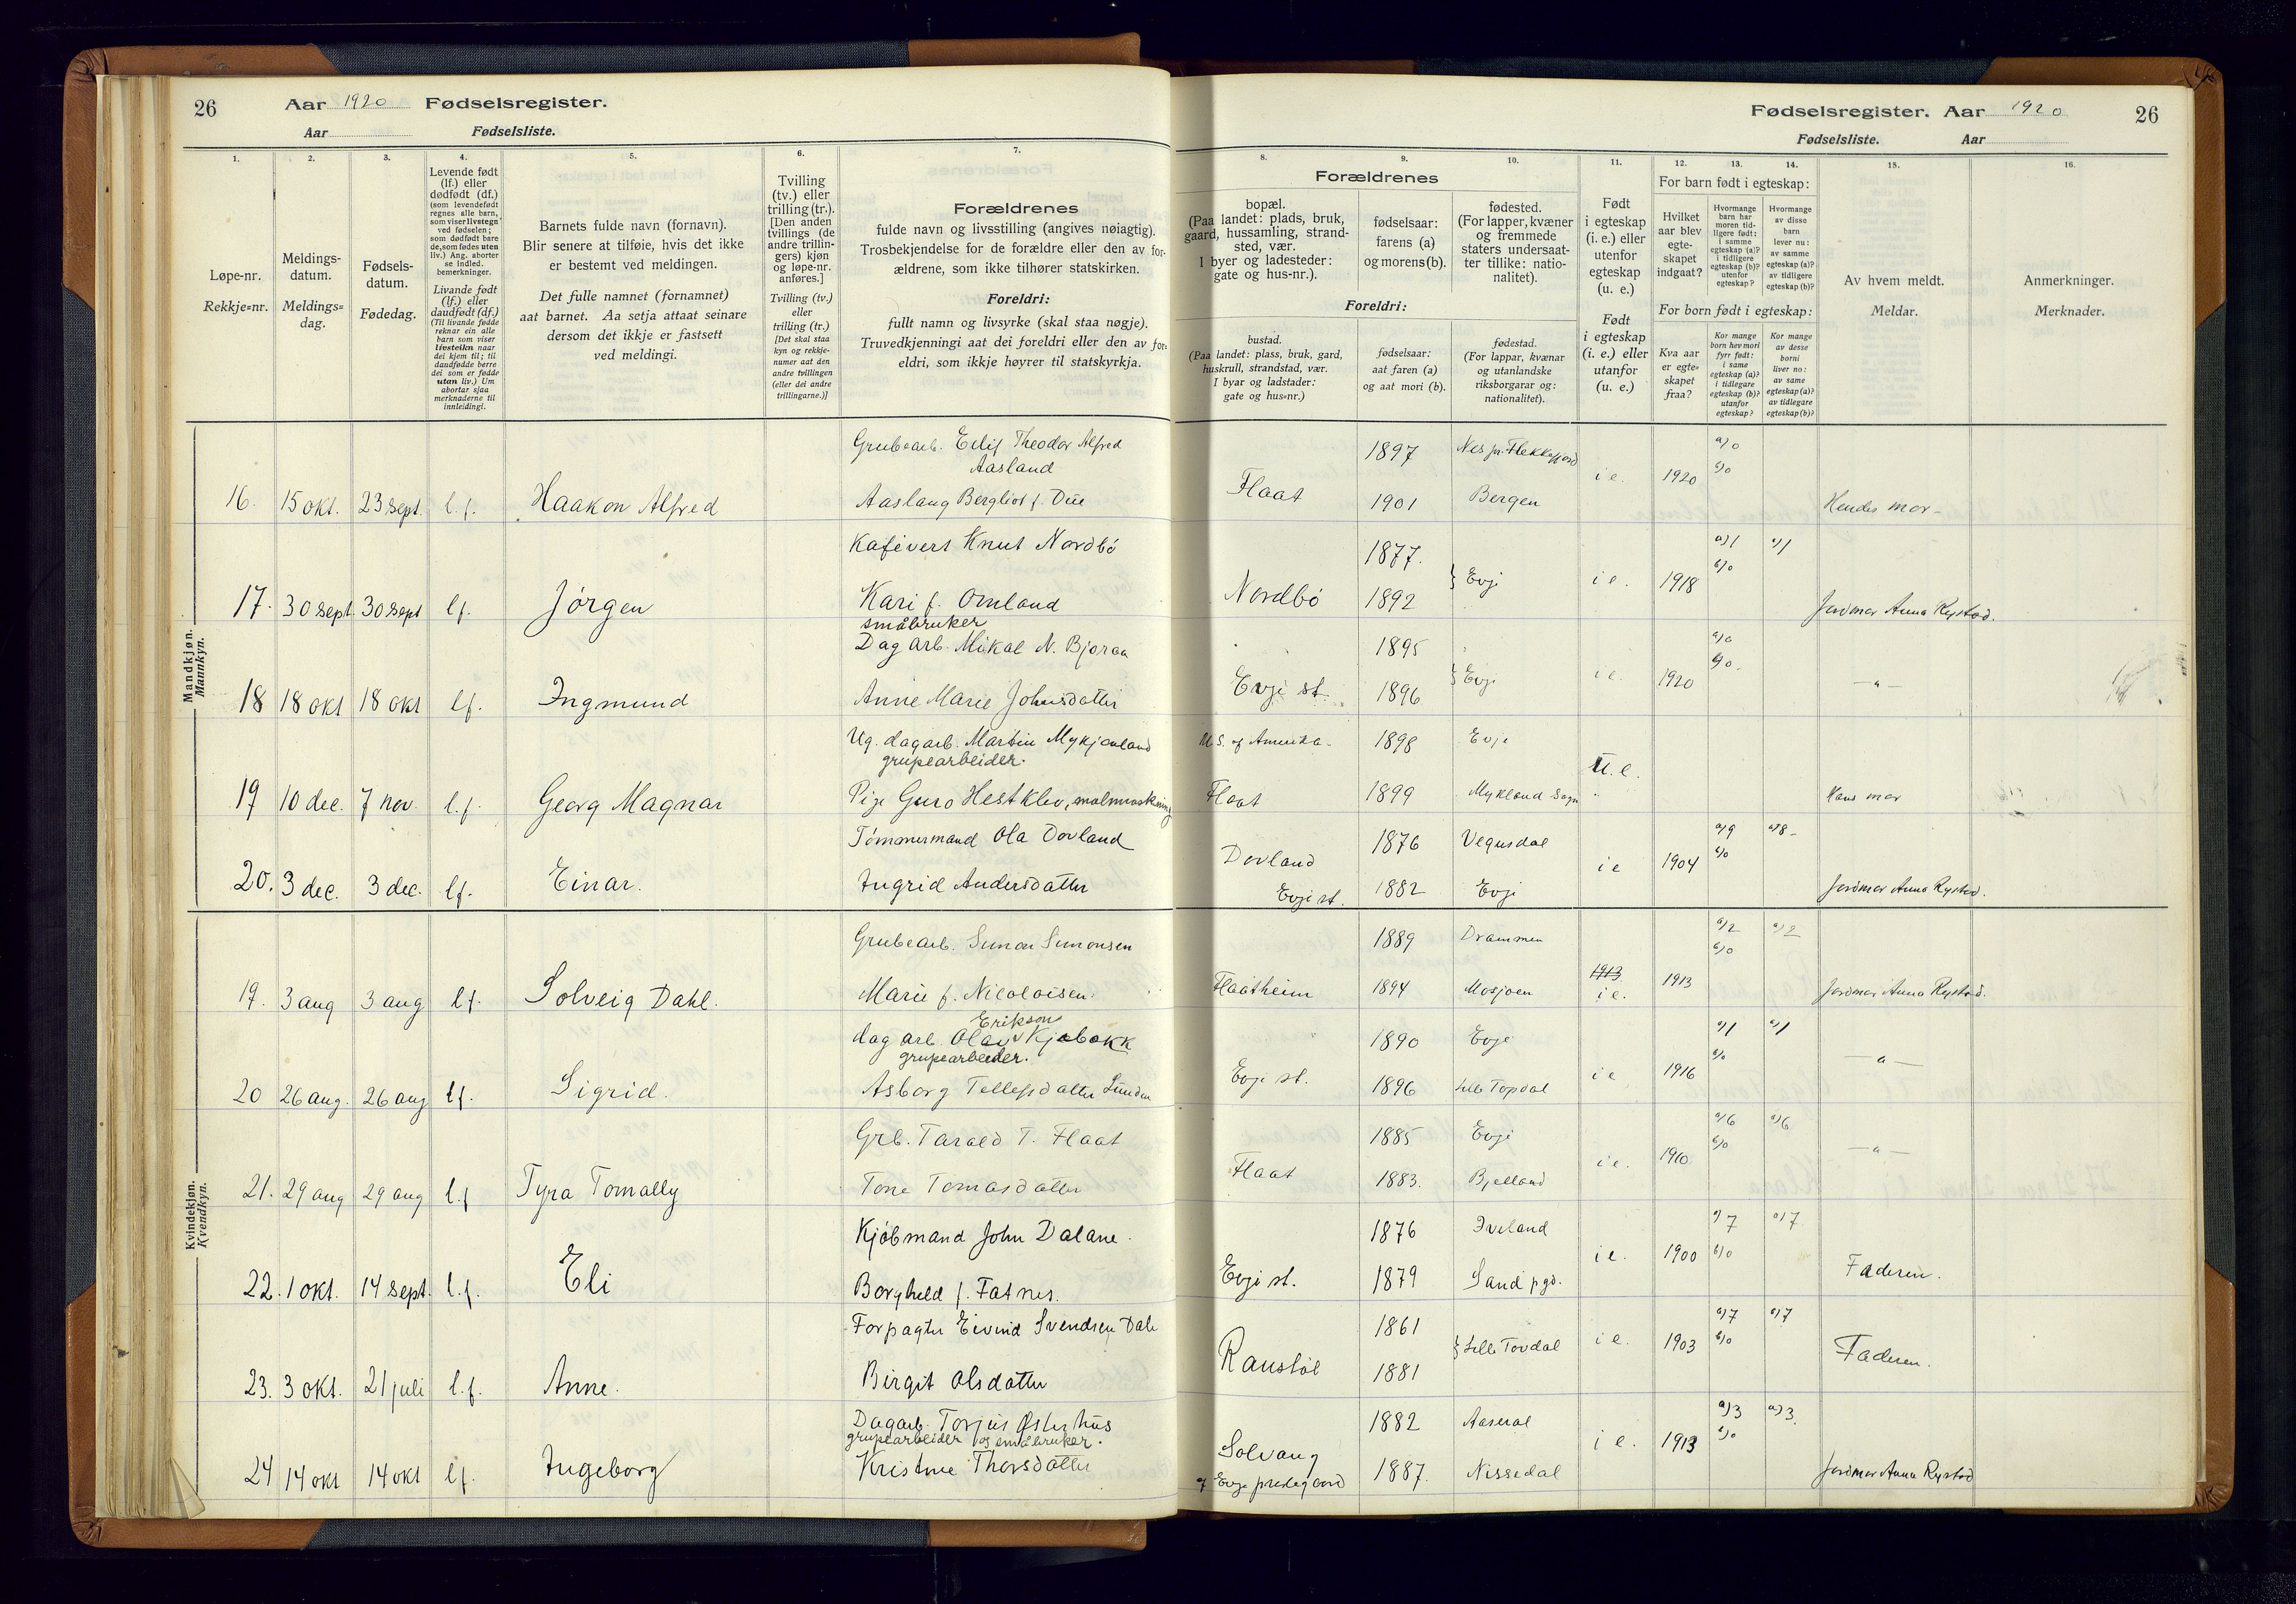 26 Aar 1920 Fødselsregister.
Aar Fødselsliste.
Fødselsregister. Aar 1920 26
Fødselsliste. Aar
1. 2. 3. 4. 5. 6. 7. 8. 9. 10. 11. 12. 13. 14. 15. 16.
Løpe-nr.
Rekkje=nr.
Meldings-
datum.
Meldings=
dag.
Fødsels-
datum.
Fødedag.
Levende født
(lf.) eller
dødfødt (df.)
(som levendefødt
regnes alle barn,
som viser livstegn
ved fødselen;
som dødfødt bare
de, som fødes uten
liv.) Ang. aborter
se indled.
bemerkninger.
Livande født
(lf.) eller
daudfødt (df.)
(Til livande fødde
reknar ein alle
barn som viser
livsteikn naar
dei kjem til; til
daudfødde berre
dei som er fødde
utan liv.) Um
abortar sjaa
merknaderne til
innleidingi.
Barnets fulde navn (fornavn).
Blir senere at tilføie, hvis det ikke
er bestemt ved meldingen.
Det fulle namnet (fornamnet)
aat barnet. Aa setja attaat seinare
dersom det ikkje er fastsett
ved meldingi.
Tvilling
(tv.) eller
trilling (tr.).
[Den anden
tvillings (de
andre trillin-
gers) kjøn
og løpe-nr.
anføres.]
Tvilling (tv.)
eller
trilling (tr.)
[Det skal staa
kyn og rekkje-
numer aat den
andre tvillingen
(eller dei andre
trillingarne.)]
Forældrenes
fulde navn og livsstilling (angives nøiagtig).
Trosbekjendelse for de forældre eller den av for-
ældrene, som ikke tilhører statskirken.
Foreldri:
fullt namn og livsyrke (skal staa nøgje).
Truvedkjenningi aat dei foreldri eller den av for-
eldri, som ikkje høyrer til statskyrkja.
Forældrenes
bopæl.
(Paa landet: plads, bruk,
gaard, hussamling, strand-
sted, vær.
I byer og ladesteder:
gate og hus-nr.).
fødselsaar:
farens (a)
og morens (b).
fødested.
(For lapper, kvæner
og fremmede
staters undersaat-
ter tillike: natio-
nalitet).
Foreldri:
bustad.
(Paa landet: plass, bruk, gard,
huskrull, strandstad, vær.
I byar og ladstader:
gate og hus=nr.)
fødselsaar:
aat faren (a)
og aat mori (b).
fødestad.
(For lappar, kvænar
og utanlandske
riksborgarar og:
nationalitet).
Født
i egteskap
(i. e.) eller
utenfor
egteskap
(u. e.)
Født
i egteskap
(i. e.) eller
utanfor
(u. e.)
For barn født i egteskap:
Hvilket
aar blev
egte-
skapet
indgaat?
Hvormange
barn har
moren tid-
ligere født:
i samme
egteskap (a)?
i tidligere
egteskap (b)?
utenfor
egteskap?
Hvormange
av disse
barn
lever nu:
av samme
egteskap (a)?
av tidligere
egteskap (b)?
For born født i egteskap:
Kva aar
er egte=
skapet
fraa?
Kor mange
born hev mori
fyrr født:
i same
egteskap (a)?
i tidlegare
egteskap (b)?
utanfor
egteskap?
Kor mange
av desse
borni
liver no:
av same
egteskap (a)?
av tidlegare
egteskap (b)?
Av hvem meldt.
Meldar.
Anmerkninger.
Merknader.
Mandkjøn.
Mannkyn.
Grubearb. Eilif Theodor Alfred 1897 Nes pr. Flekkefjord a) 0
Aasland
16. 15 okt. 23 sept. l. f. Haakon Alfred Aaslaug Bergliot f. Due Flaat 1901 Bergen i e. 1920 b) 0 Hendes mor
Kafévert Knut Nordbö 1877. a) 1 a) 1
17. 30 sept. 30 sept lf. Jörgen Kari f. Omland Nordbö 1892 } Evje i e. 1918 b) 0 Jordmor Anna Rystad.
småbruker
Dag arb. Mikal N. Bjoraa 1895 a) 0
18 18 okt 18 okt lf. Ingmund Anne Marie Johnsdatter Evje st. 1896 } Evje i e. 1920 b) 0. — " —
Ug. dagarb. Martin Mykjaaland U. S. of Amerika 1898 Evje
grupearbeider.
19 10 dec. 7 nov. l. f. Georg Magnar Pige Guro Hestklev, Flaat 1899 Mykland Sogn U. e. Hans mor
Tömmermand Ola Dovland 1876 Vegusdal a) 9 a) 8
20. 3 dec. 3 dec. lf. Einar. Ingrid Andersdatter Dovland Evje st. 1882 Evje i e 1904 b) 0 Jordmor Anna Rystad.
Kvindekjøn.
Kvendkyn.
Grubearb. Simon Simonsen 1889 Drammen 1913 a) 2 a) 2
19. 3 aug 3 aug lf. Solveig Dahl. Marie f. Nicolaisen. Flaatheim 1894 Mosjøen i e. 1913 b) 0 Jordmor Anna Rystad.
Erikson
dag arb. Olav Kjebekk 1890 Evje a) 1 a) 1
grupearbeider.
20 26 aug. 26 aug lf. Sigrid. Asborg Tellefsdatter Evje st. 1896 Lille Topdal i e 1916 b) 0 — " —
Grb. Tarald T. Flaat 1885 Evje a) 6 a) 6
21. 29 aug 29 aug l. f Tyra Tomally Tone Tomasdatter Flaat 1883. Bjelland i e. 1910 b) 0 — " —
Kjöbmand John Dalane. 1876 Iveland a) 7 a) 7
22. 1 okt. 14 sept. l. f. Eli Borghild f. Fatnes. Evje st. 1879 Sand pgd. i e. 1900 b) 0 Faderen.
Forpagter Eivind Svendsen Dale 1861 a) 7 a) 7
23. 3 okt. 21 juli l. f. Anne. Birgit Olsdatter Raustöl 1881 } Lille Tovdal i e. 1903 b) 0 Faderen.
Dagarb. Torjus Østerhus 1882 Aaseral a) 3 a) 3.
grupearbeider og småbruker.
24 14 okt 14 okt lf. Ingeborg Kristine Thorsdatter Solvang 1887. Nissedal i e. 1913 b) 0 Jordmor Anna Rystad
af Evje prestegaard